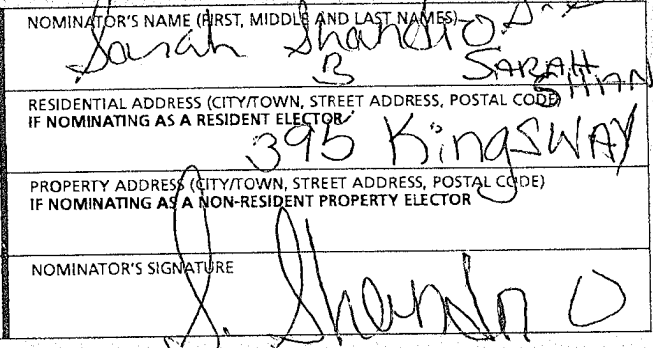 NOMINATOR'S NAME (FIRST, MIDDLE AND LAST NAMES)
Sarah Shandro
B SARAH
SHAN
RESIDENTIAL ADDRESS (CITY/TOWN, STREET ADDRESS, POSTAL CODE)
IF NOMINATING AS A RESIDENT ELECTOR
395 KingSWAY
PROPERTY ADDRESS (CITY/TOWN, STREET ADDRESS, POSTAL CODE)
IF NOMINATING AS A NON-RESIDENT PROPERTY ELECTOR
NOMINATOR'S SIGNATURE
S.